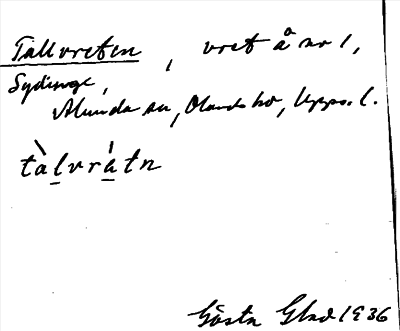 Tallvreten, vret å nr 1,
Sydinge,
Alunda sn, Olands hd, Upps. l.
tàlvrátn
Gösta Glad 1936